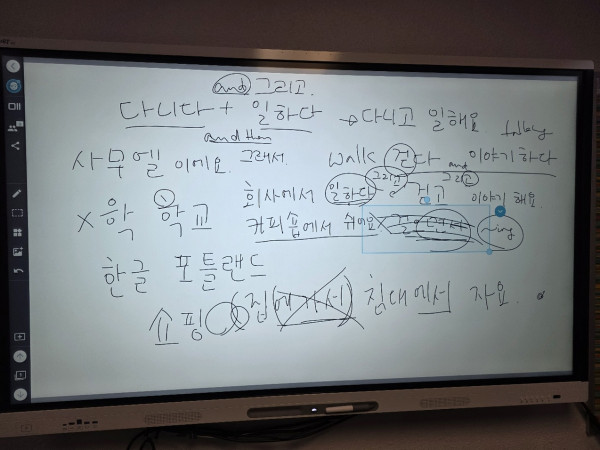 and 그리고.
다니다 + 일하다 → 다니고 일해요
and then
사무엘 이에요. 그래서. walk 걷다 and 이야기하다
그리고 그리고
X 학 학교 회사에서 일하다 걷고 이야기 해요.
커피숍에서 쉬어요 ~ing
한글 포틀랜드
쇼핑 (집에가서) 침대에서 자요.